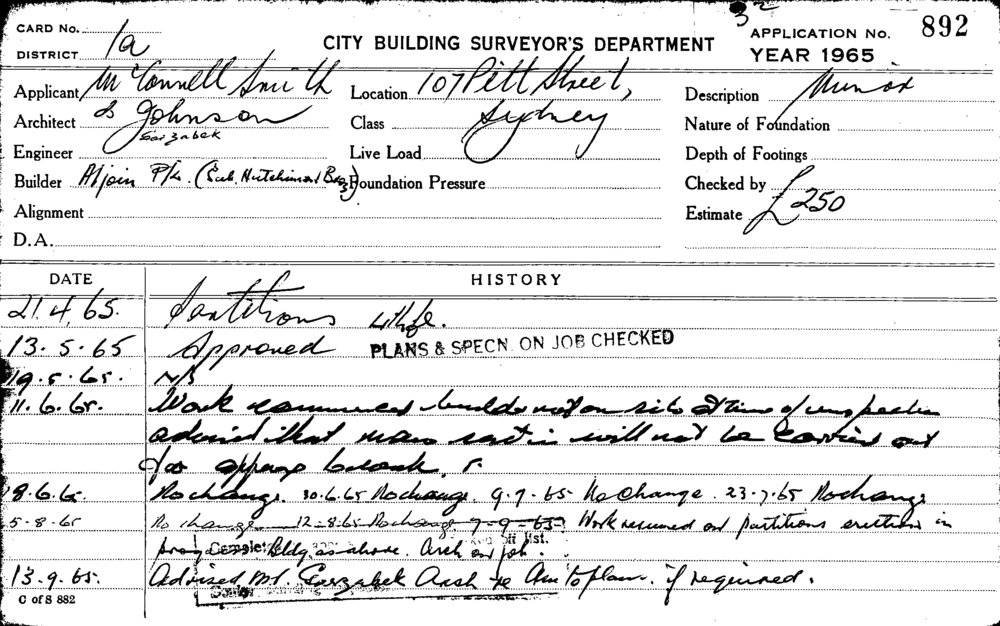 32
CARD No.
DISTRICT 1a
CITY BUILDING SURVEYOR'S DEPARTMENT
APPLICATION No. 892
YEAR 1965
Applicant McConnell Smith
Location 107 Pitt Street,
Sydney
Description Minor
Architect & Johnson
Class
Nature of Foundation
Engineer
Live Load
Depth of Footings
Builder P/L. (Sub. Hutchinson Bros)
Foundation Pressure
Checked by
Alignment
Estimate £250
D.A.
DATE HISTORY
21.4.65. Partitions 4th fl.
13.5.65 Approved PLANS & SPECN. ON JOB CHECKED
19.5.65. N/S
11.6.65. Work commenced builder not on site at time of inspection
advised that will not be carried out
for
8.6.65. No change. 30.6.65 No change. 9.7.65 No change. 23.7.65 No change
5.8.65 No change 12.8.65 No change 7-9-65 Work resumed on partitions erection in
Bldg. as above. Arch on job.
13.9.65. Advised Mr. Arch re Am to plan. if required.
C of S 882